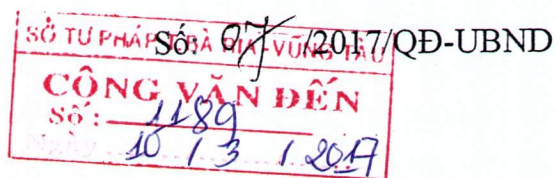 Số: 07 /2017/QĐ-UBND
SỞ TƯ PHÁP T. BÀ RỊA-VŨNG TÀU
CÔNG VĂN ĐẾN
Số: 1189
Ngày 10 / 3 / 2017